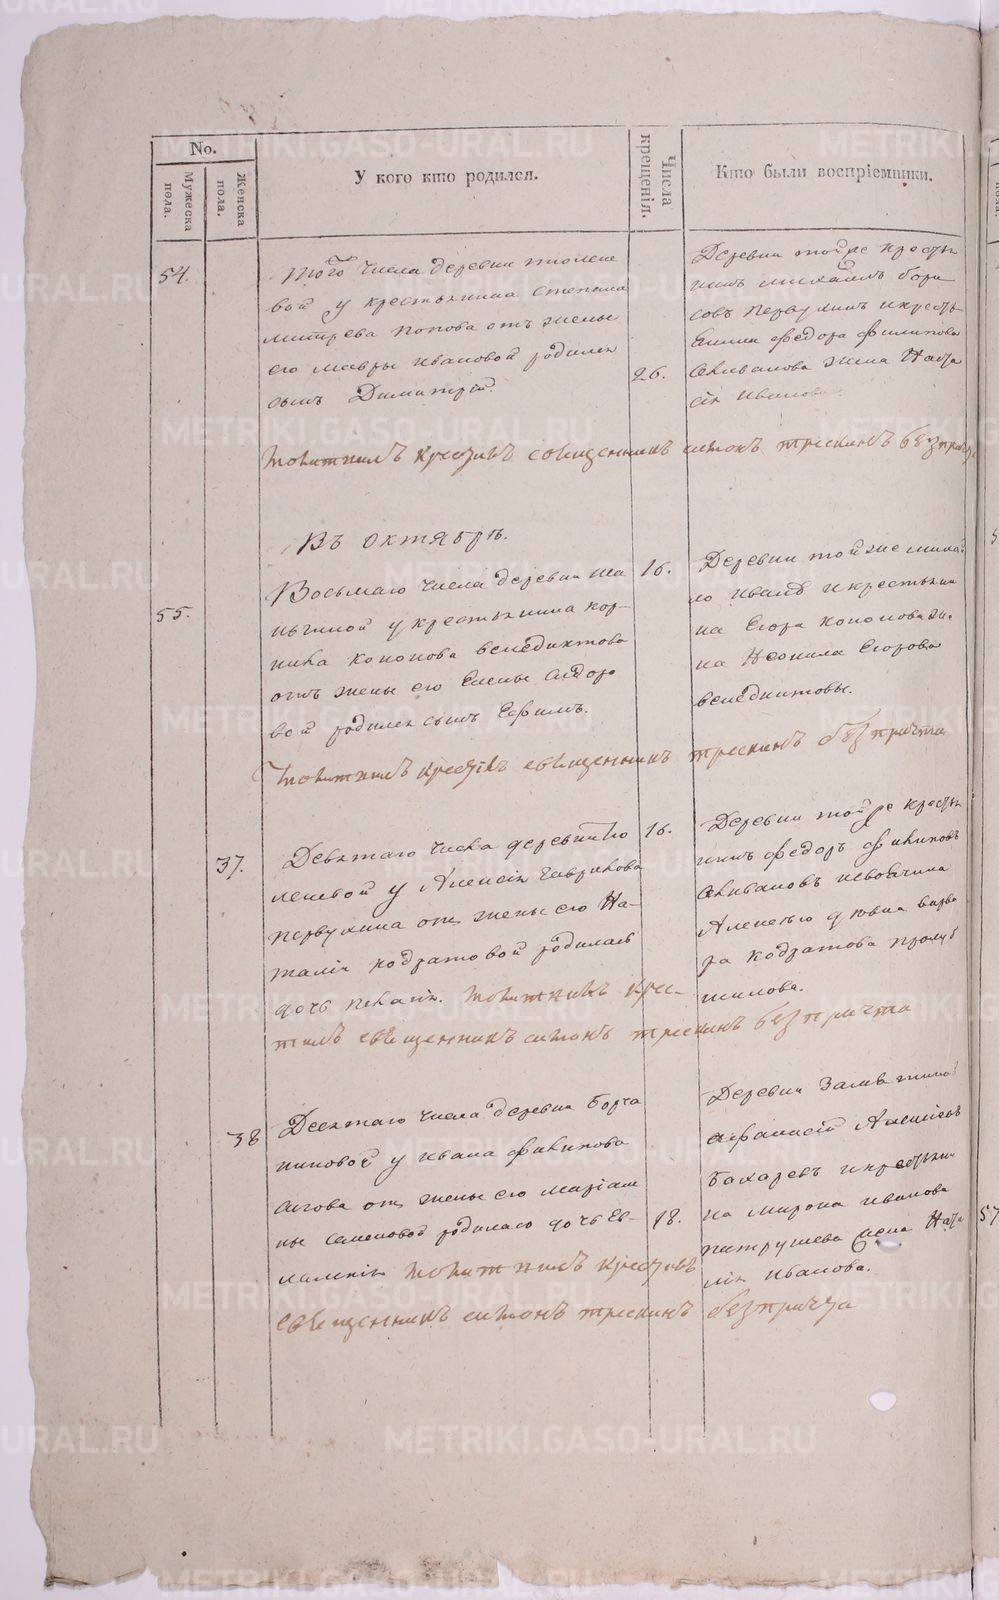 No.
Мужеска пола.
Женска пола.
У кого кто родился.
Числа крещенія.
Кто были воспріемники.
54.
Того числа деревни
вой у крестьянина степана
митрева попова отъ жены
его мавры ивановой родился
сынъ Димитрій.
26.
Деревни тойже кресть
нинъ михаилъ бори
совъ первухинъ и кресть
нина федора филипова
селиванова жена Ната
лія иванова.
молитвилъ крестилъ священникъ симонъ трескинъ безпричта
Въ октябрѣ.
55.
Восьмаго числа деревни
у крестьянина кор-
нила кононова венедиктова
отъ жены его Елены Сидоро
вой родился сынъ Ефимъ.
16.
Деревни тойже
ло ивановъ и крестьяни
на Егора кононова же
на Неонила Егорова
венедиктовы.
молитвилъ крестилъ священникъ трескинъ безпричта
37.
Девятаго числа деревни
левой у Алексія гаврилова
первухина отъ жены его На-
таліи кодратовой родилась
дочь пелагія. молитвилъ крес-
тилъ священникъ симонъ трескинъ безпричта
16.
Деревни тойже кресть
нинъ федоръ филиповъ
селивановъ
Алексѣю д ѣвка варва
ра кодратова
шилова.
38
Десятаго числа деревни
нниковой у ивана филипова
отъ жены его маріам
ны семеновой родилась дочь Ев-
лампія молитвилъ крестилъ
священникъ симонъ трескинъ безпричта
18.
Деревни
афанасій Алексіевъ
Бахаревъ и крестьяни
на мирона иванова
патрушева жена Ната
лія иванова.
57
METRIKI.GASO-URAL.RU